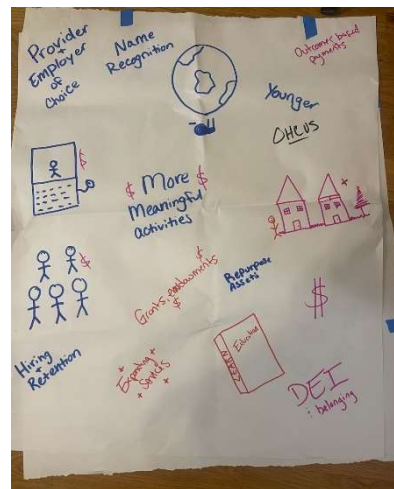 Provider
+
Employer
of
Choice
Name
Recognition
Outcomes based
payments
Younger
OHCUS
$
$ More $
Meaningful
activities
$
Grants, endowments
$
$
Repurpose
Assets
$
Hiring
+
Retention
Expanding
Services
LEARN
Education
DEI
: belonging